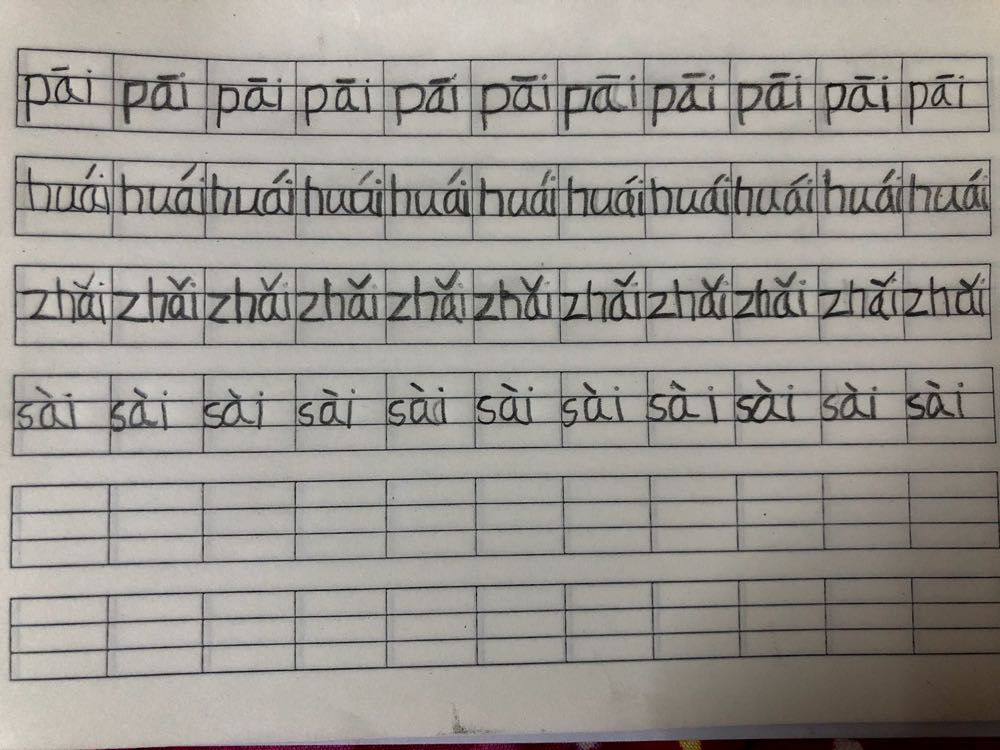 pāi pāi pāi pāi pāi pāi pāi pāi pāi pāi pāi
huái huái huái huái huái huái huái huái huái huái huái
zhǎi zhǎi zhǎi zhǎi zhǎi zhǎi zhǎi zhǎi zhǎi zhǎi zhǎi
sài sài sài sài sài sài sài sài sài sài sài